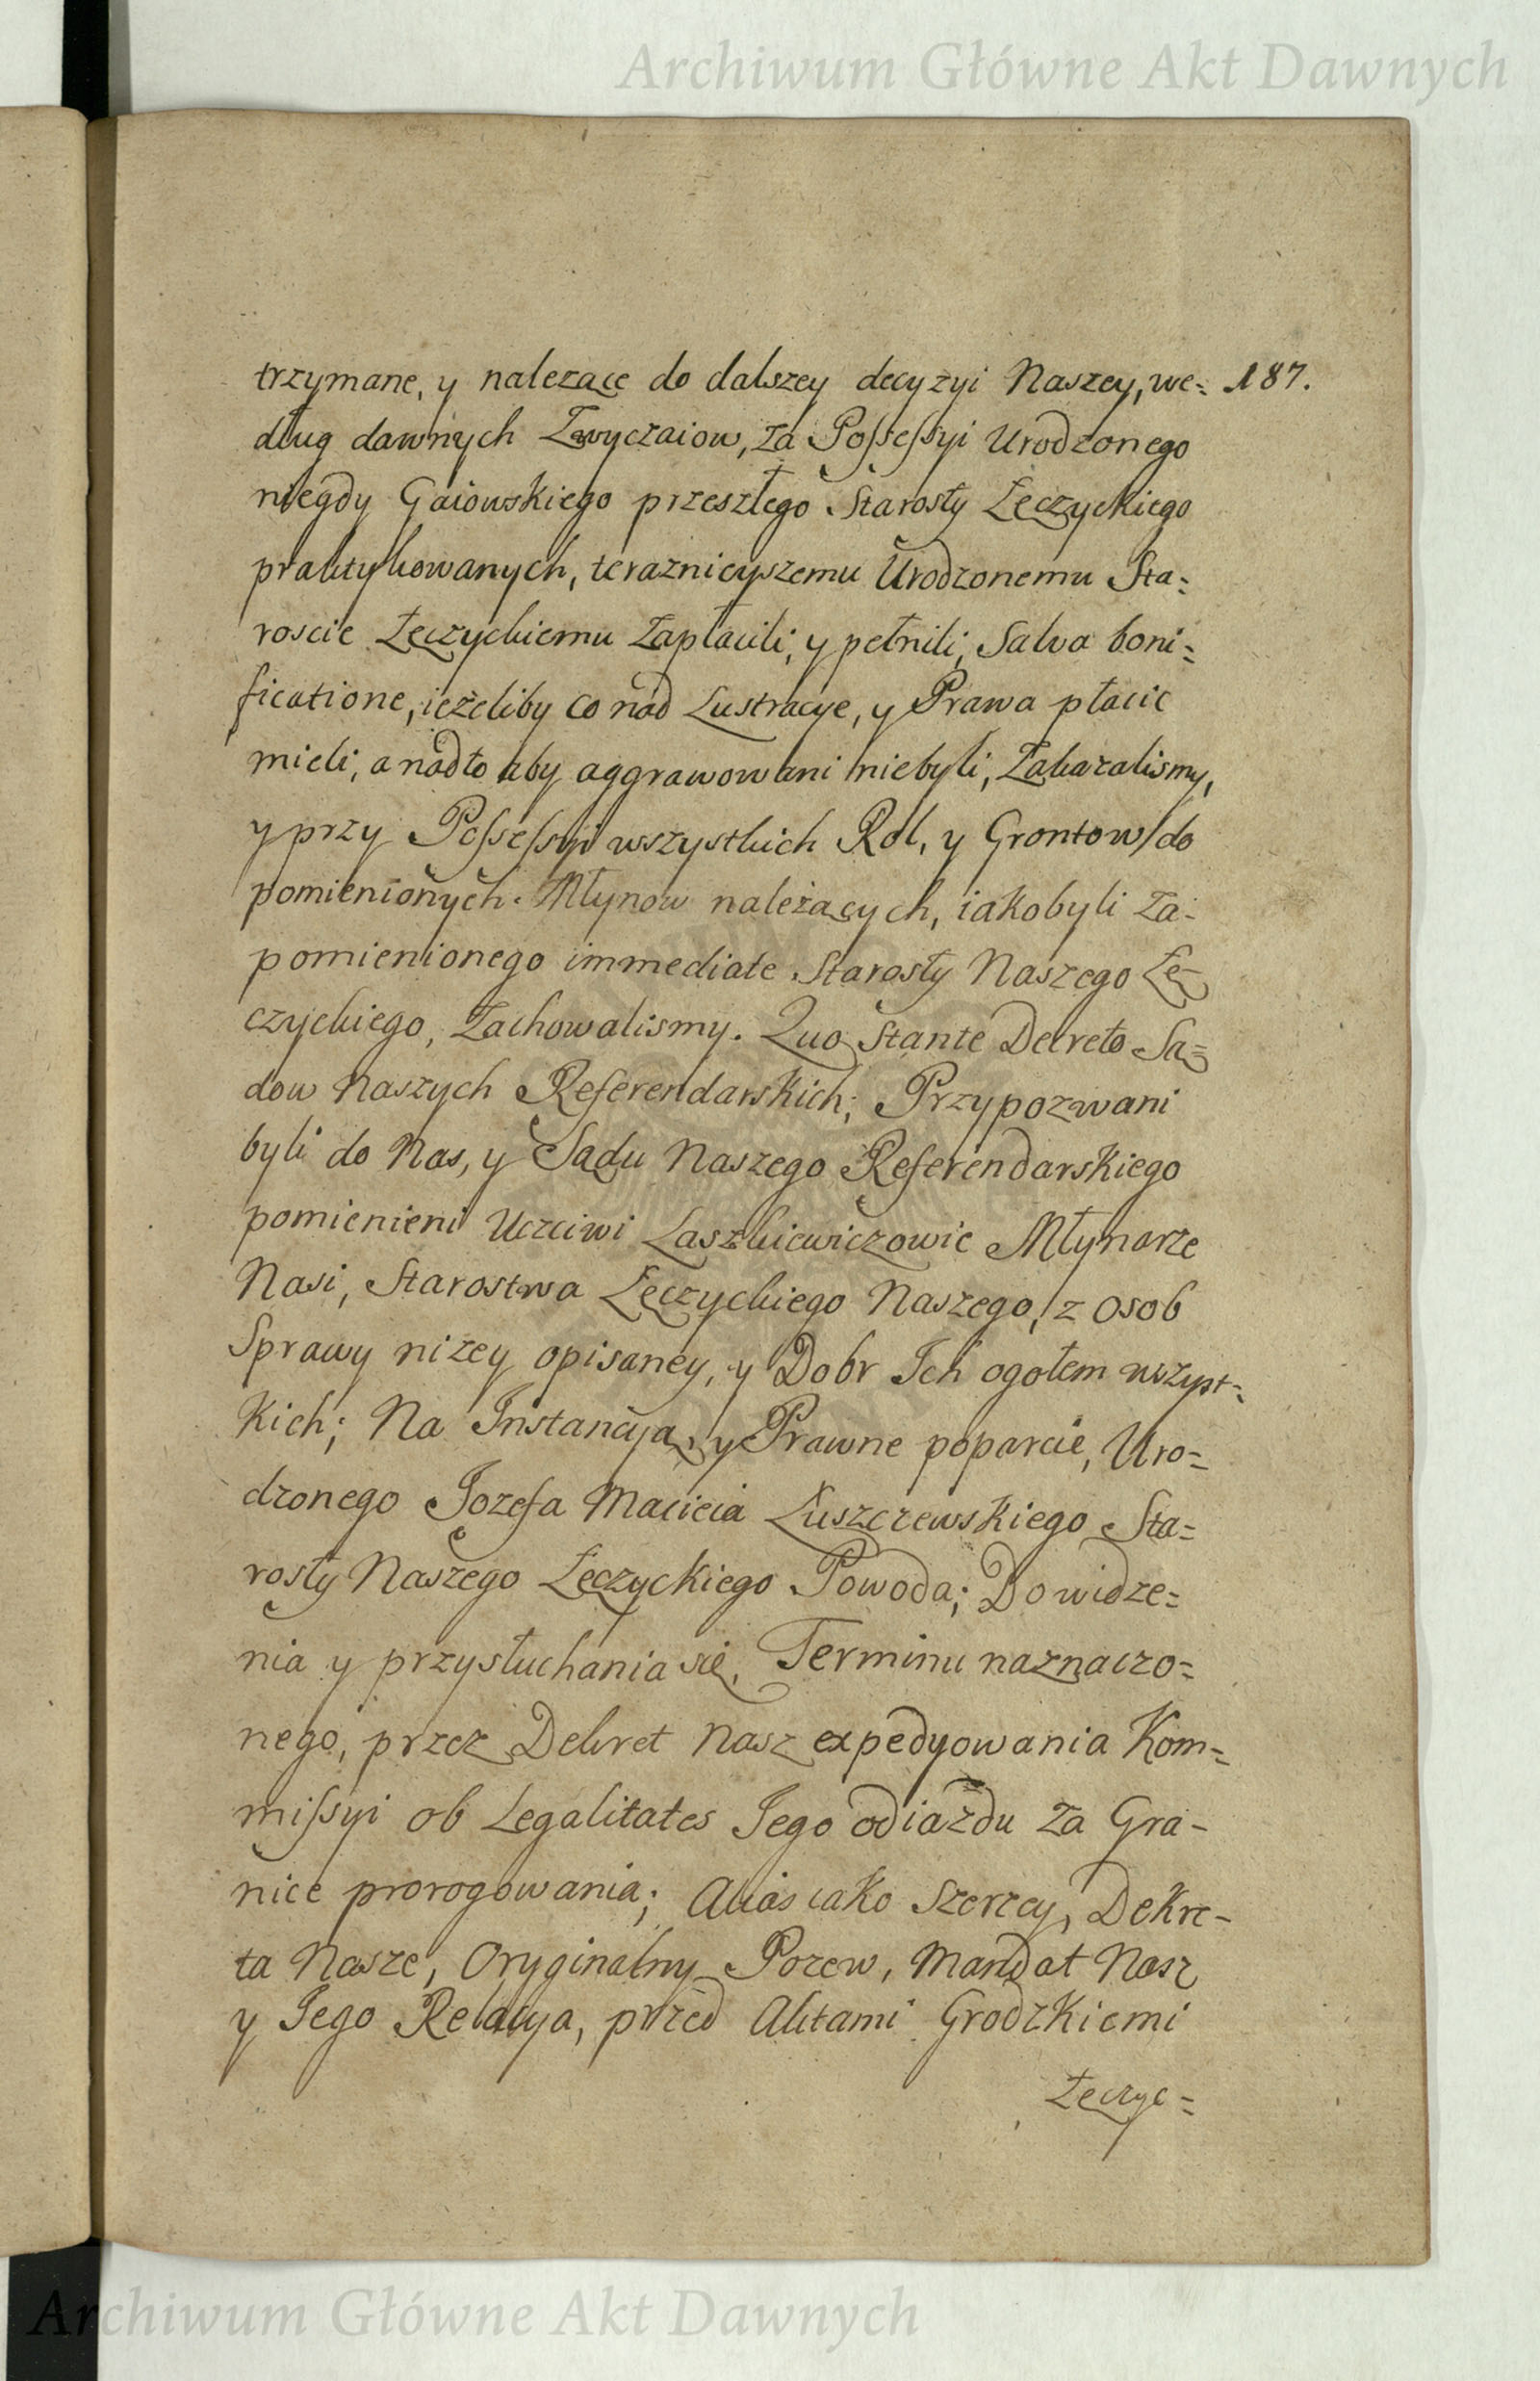 Archiwum Główne Akt Dawnych
trzymane, y należące do dalszey decyzyi Naszey, we= 187.
dług dawnych Zwyczaiow, za Possessyi Urodzonego
niegdy Gaiowskiego przeszłego Starosty Łęczyckiego
praktykowanych, teraznieyszemu Urodzonemu Sta=
roscie Łęczyckiemu Zapłacili, y pełnili, Salva boni=
ficatione, ieżeliby co nad Lustracye, y Prawa płacic
mieli, a nadto aby aggrawowani niebyli, Zakazalismy,
y przy Possessyi wszystkich Rol, y Grontow do
pomienionych Młynow należących, iako byli za-
pomienionego immediate Starosty Naszego Łę-
czyckiego, Zachowalismy. Quo Stante Decreto Są=
dow Naszych Referendarskich; Przypozwani
byli do Nas, y Sądu Naszego Referendarskiego
pomienieni Uczciwi Laszkiewiczowie Młynarze
Nasi, Starostwa Łęczyckiego Naszego, z osob
Sprawy niżey opisaney, y Dobr Ich ogołem wszyst=
kich; Na Instancyą, y Prawne poparcie, Uro=
dzonego Jozefa Macieia Łuszczewskiego Sta=
rosty Naszego Łęczyckiego Powoda; Do widze=
nia y przysłuchania się, Terminu naznaczo=
nego, przez Dekret Nasz expedyowania Kom=
missyi ob Legalitates Jego odiazdu za Gra-
nice prorogowania; Alias iako Szerzey, Dekre-
ta Nasze, Oryginalny Pozew, Mandat Nasz
y Jego Relacya, przed Aktami Grodzkiemi
Łęczyc=
Archiwum Główne Akt Dawnych